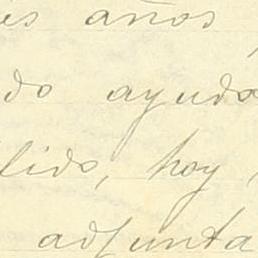 es años
do ayuda
lido, hoy
adjunta